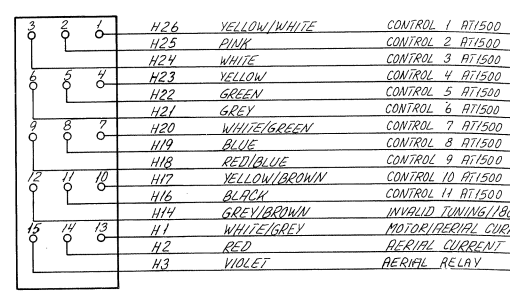 3 2 1 H26 YELLOW/WHITE CONTROL 1 AT1500
H25 PINK CONTROL 2 AT1500
H24 WHITE CONTROL 3 AT1500
6 5 4 H23 YELLOW CONTROL 4 AT1500
H22 GREEN CONTROL 5 AT1500
H21 GREY CONTROL 6 AT1500
9 8 7 H20 WHITE/GREEN CONTROL 7 AT1500
H19 BLUE CONTROL 8 AT1500
H18 RED/BLUE CONTROL 9 AT1500
12 11 10 H17 YELLOW/BROWN CONTROL 10 AT1500
H16 BLACK CONTROL 11 AT1500
H14 GREY/BROWN INVALID TUNING/180
15 14 13 H1 WHITE/GREY MOTOR/AERIAL CURR
H2 RED AERIAL CURRENT
H3 VIOLET AERIAL RELAY